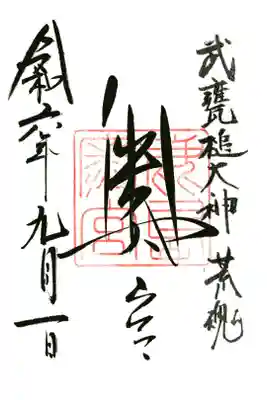 武甕槌大神 荒魂
奥宮
令和六年九月一日